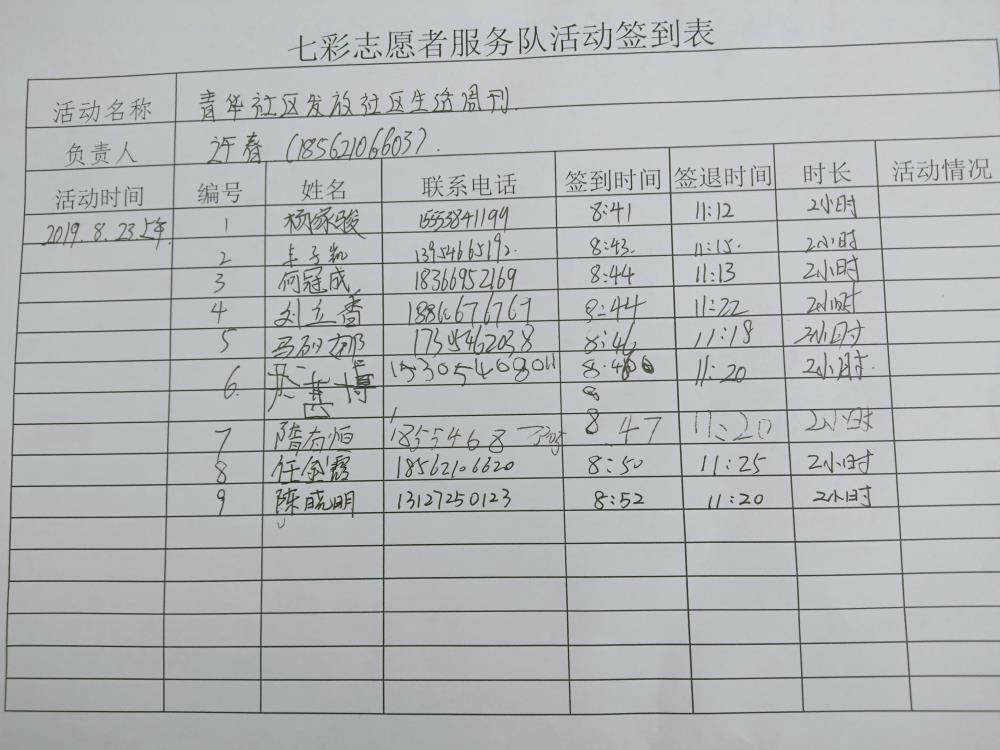 七彩志愿者服务队活动签到表
活动名称 青华社区发放社区生活周刊.
负责人 许春 (18562106603).
活动时间 编号 姓名 联系电话 签到时间 签退时间 时长 活动情况
2019.8.23上午. 1 杨家骏 15553841199 8:41 11:12 2小时
2 13954665192. 8:43. 11:15. 2小时
3 何冠成 18366952169 8:44 11:13 2小时
4 刘立香 18866676767 8:44 11:22 2小时
5 17354662038 8:46 11:19 2小时
6. 15305468011 11:20 2小时.
7 隋右恒 8 47 11:20 2小时
8 任金霞 18562106620 8:50 11:25 2小时
9 陈晓明 13127250123 8:52 11:20 2小时